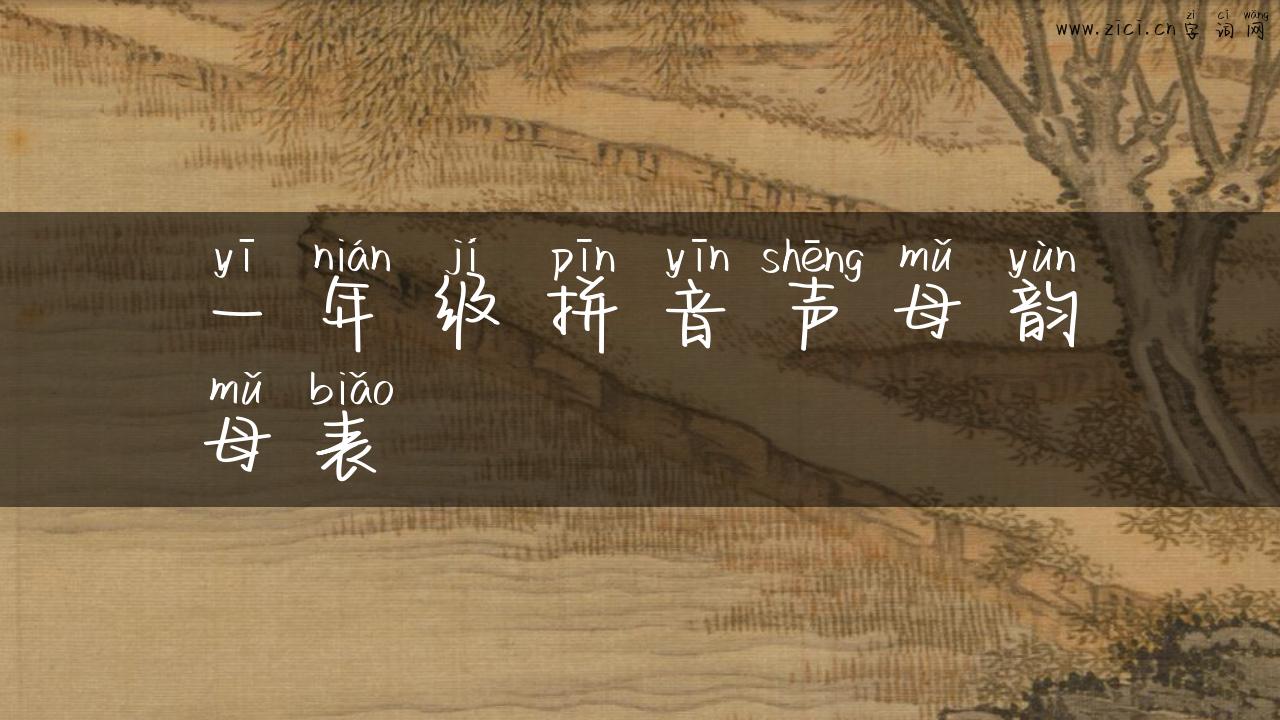 zì cí wǎng
www.zici.cn字词网
yī nián jí pīn yīn shēng mǔ yùn
一年级拼音声母韵
mǔ biǎo
母表